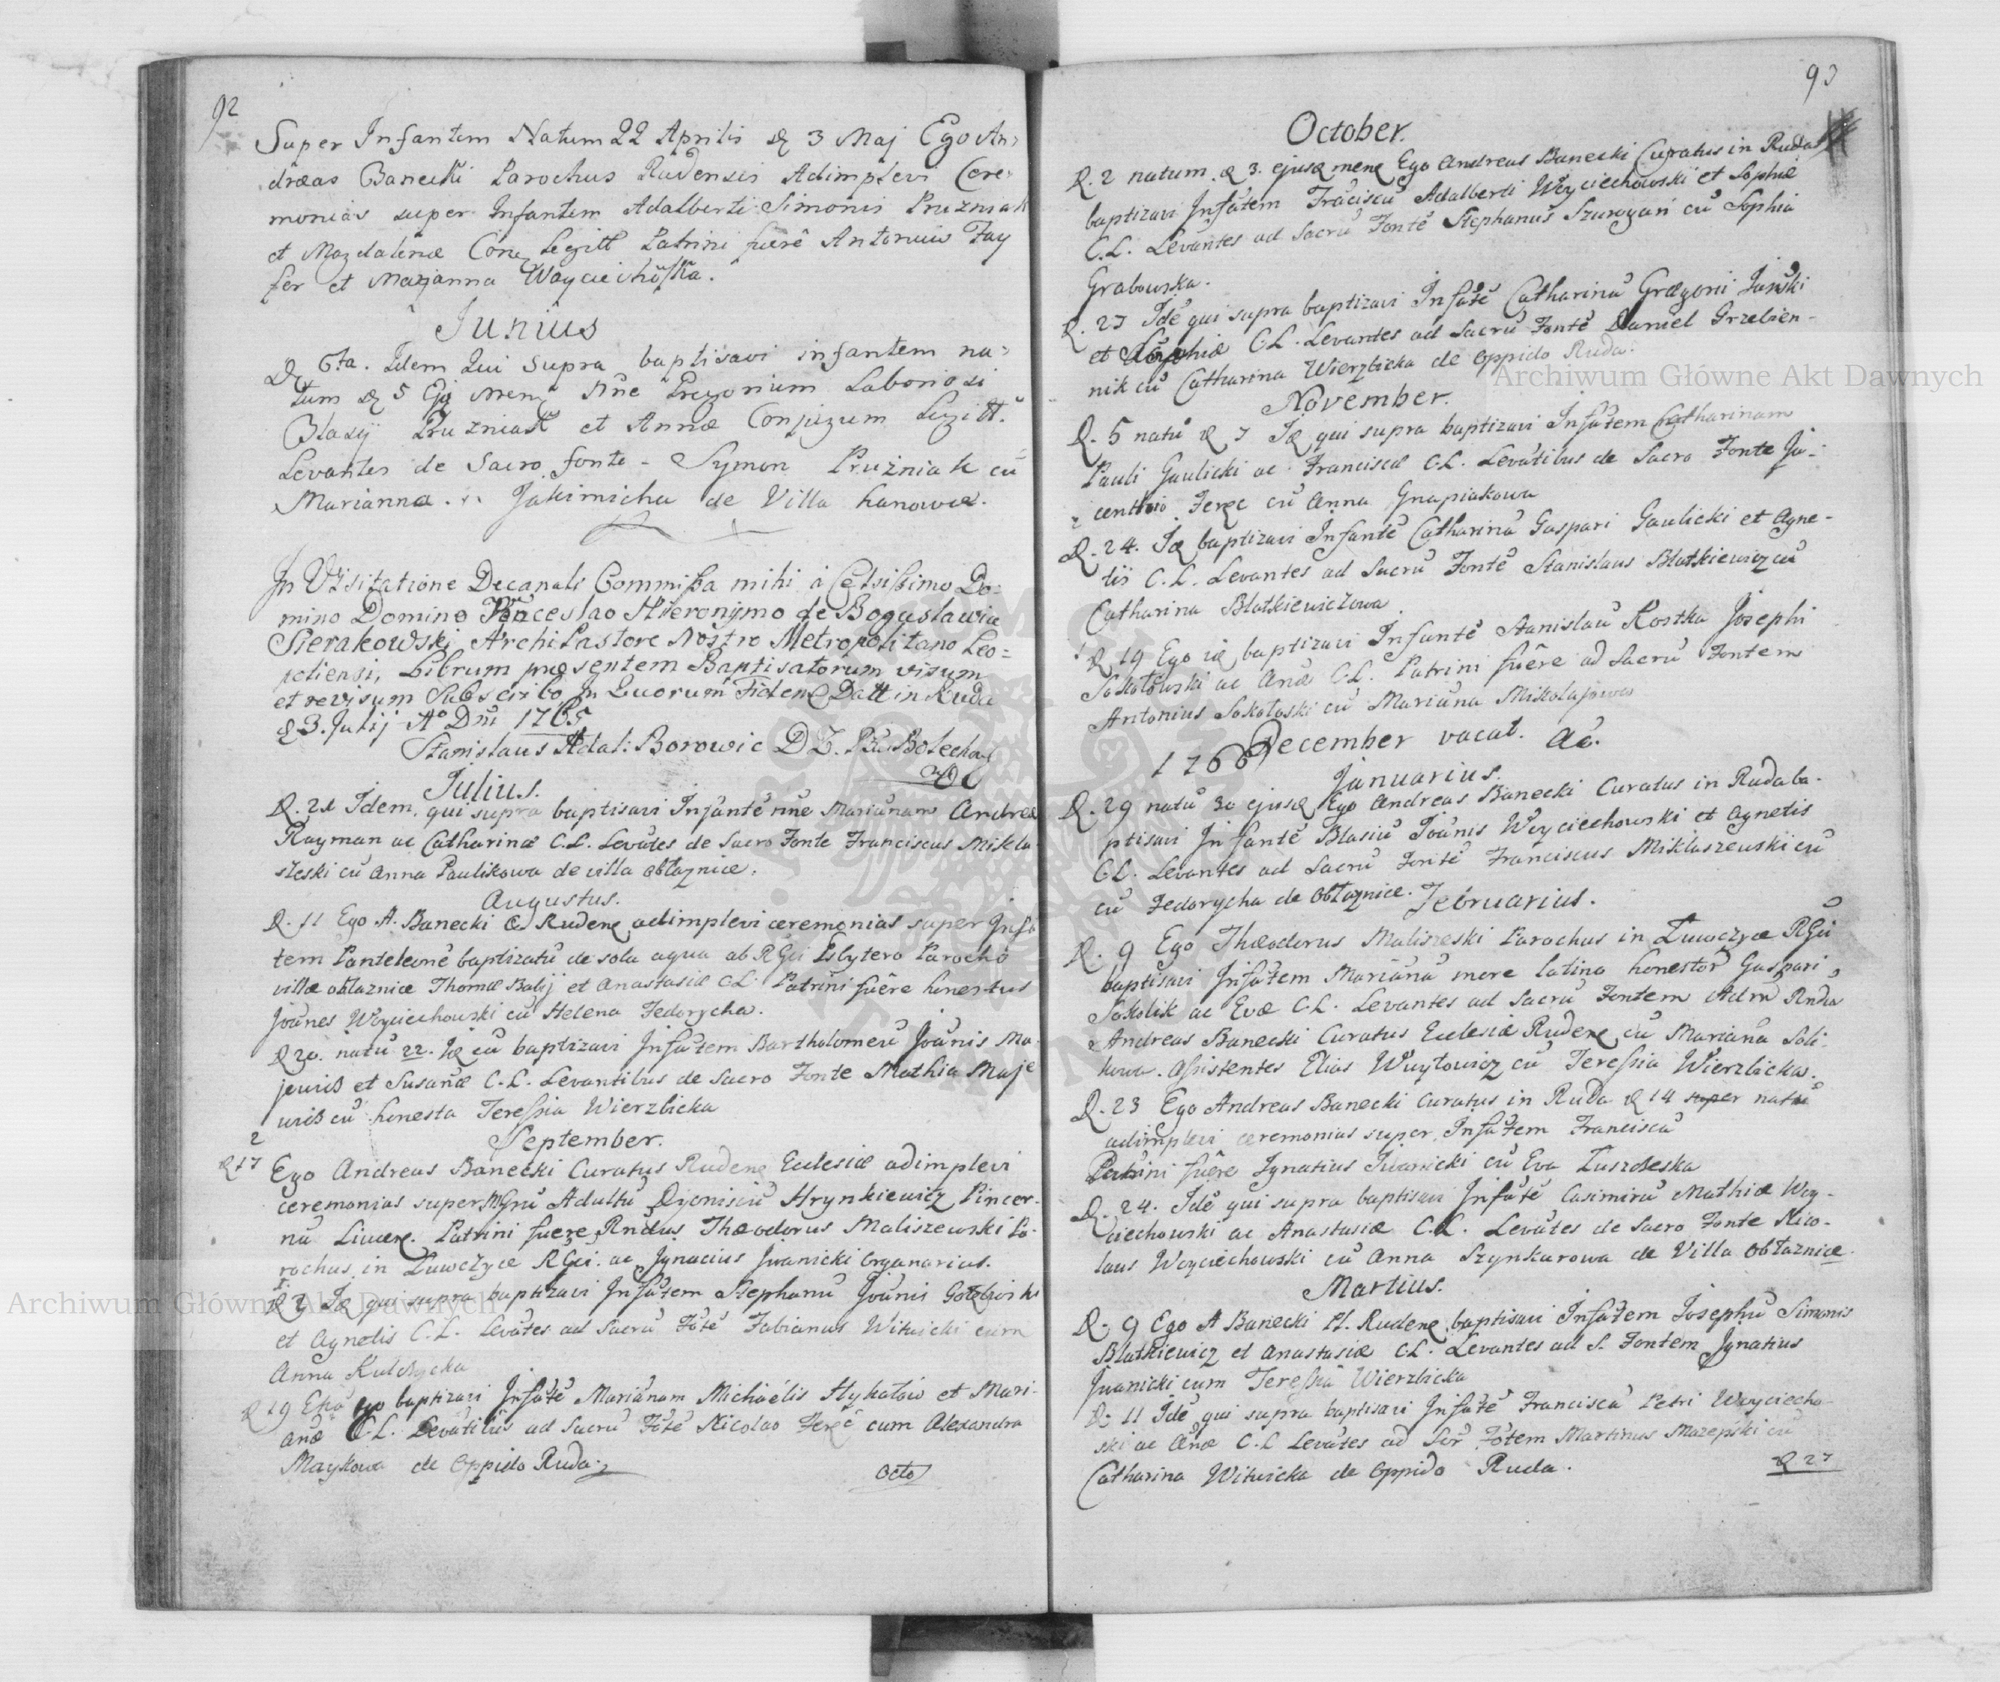 92
Super Infantem Natum 22 Aprilis d 3 Maj Ego An=
dreas Banecki Parochus Rudensis Adimplevi Cere=
monias super Infantem Adalberti Simonis Pruzniak
et Magdalenæ Legitt Patrini fuere Antonius Fay
fer et Marjanna
Junius
6ta. Idem Qui Supra baptisavi infantem na=
tum d 5 Ej Mens Laboriosi
Blasij Pruzniak et Annæ Conjugum Legitt.
Levantes de Sacro fonte - Symon Pruzniak cū
Marianna Jakimicha de Villa hanowce.
In Visitatione Decanali Commissa mihi à Celsissimo Do=
mino Domino Venceslao Hieronymo de Bogusławice
Sierakowski ArchiPastore Nostro Metropolitano Leo=
poliensi, Librum præsentem Baptisatorum visum
et revisum Subscribo In Quorum Fidem Datt in Ruda
d 3. Julij Ao Dni 1765
Stanislaus Adal: Borowic D Z.
Julius.
D. 21 Idem, qui supra baptisavi Infantē nñe Mariānam Andreæ
Rayman ac Catharinæ C.L. Levātes de Sacro Fonte Franciscus Mikla-
szeski cū Anna Paulikowa de villa Obłaznice.
Augustus.
D. 11 Ego A. Banecki C Rudens adimplevi ceremonias super Infā
tem Panteleonē baptizatū de sola aqua ab RGci Psbytero Parocho
villæ obłaznice Thomæ Balij et Anastasiæ CL. Patrini fuêre honestus
Joānes Woyciechowski cū Helena Fedorycha.
D 20. natū 22. Ią cū baptizavi Infātem Bartholomeū Joānis Ma-
jewicz et Susanæ C.L. Levantibus de Sacro Fonte Mathia Maje
wicz cū honesta Teressia Wierzbicka
September.
d 17 Ego Andreas Banecki Curatus Rudens Ecclesiæ adimplevi
ceremonias super Adultū Dyonisiū Hrynkiewicz Pincer-
nā Patrini fuere Rndus Theodorus Maliszewski Pa-
rochus in Zuwczyce RGci. ac Jgnacius Jwanicki Organarius.
qui supra baptizavi Infātem Stephanū Joānis
et Agnetis C.L. Levātes ad Sacrū Fōtē Fabianus Witwicki cum
Anna Kulczycka
D 19 baptizavi Infātē Mariānam Michaelis Hykałow et Mari-
anæ C.L. Levātibus ad Sacrū Fōtē Nicolao Ferec cum Alexandra
Maykowa de Oppido Ruda.
Octo
93
October.
D. 2 natum. d 3. ejusd mens Ego Andreas Banecki Curatus in Ruda
baptizavi Infātem Frāciscū Adalberti Woyciechowski et Sophiæ
C.L. Levantes ad Sacrū Fontē Stephanus cū Sophia
Grabowska.
D. 27 Idē qui supra baptizavi Infātē Catharinā Gregorii
et Sophiæ C.L. Levantes ad Sacrū Fontē Daniel Grzebien-
nik cū Catharina Wierzbicka de oppido Ruda.
November.
D. 5 natū d 7 Ią qui supra baptizavi Infātem Catharinam
Pauli Gaulicki ac Franciscæ C.L. Levātibus de Sacro Fonte Ja-
centhio Ferec cū Anna Gnapiakowa
D. 24. Ią baptizavi Infantē Catharinā Gaspari Gaulicki et Agne-
tis C.L. Levantes ad Sacrū Fontē Stanislaus Blatkiewicz cū
Catharina Blatkiewiczowa.
D 19 Ego baptizavi Infantē Stanislaū Kostka Josephi
Sokołowski ac Anæ C.L. Patrini fuêre ad Sacrū Fontem
Antonius Sokołoski cū Mariāna Mikołajowa
December vacat. Ao.
1766
Januarius.
D. 29 natū 30 ejusd Ego Andreas Banecki Curatus in Ruda ba-
ptisavi Infantē Blasiū Joānis Woyciechowski et Agnetis
CL. Levantes ad Sacrū Fontē Franciscus Miklaszewski cū
cū Fedorycha de Obłaznice. Februarius.
D. 9 Ego Theodorus Maliszeski Parochus in Zuwczyce RGci
baptisavi Infātem Mariānā more latino honestor Gaspari
Sokolik ac Evæ C.L. Levantes ad Sacrū Fontem Adm Rndus
Andreas Banecki Curatus Ecclesiæ Rudens cū Mariāna Soli-
kowa. Assistentes Elias Woytowicz cū Teressia Wierzbicka.
D. 23 Ego Andreas Banecki Curatus in Ruda d 14 super natū
adimplevi ceremonias super Infātem Franciscū
Patrini fuêre Jgnatius Jwanicki cū Eva
D. 24. Idē qui supra baptisavi Infātē Casimirū Mathiæ Woy-
ciechowski ac Anastasiæ C.L. Levātes de Sacro Fonte Nico-
laus Woyciechowski cū Anna Szynkarowa de Villa Obłaznice.
Martius.
D. 9 Ego A Banecki Pl. Rudens baptisavi Infātem Josephū Simonis
Blatkiewicz et Anastasiæ CL. Levantes ad S. Fontem Jgnatius
Jwanicki cum Teressia Wierzbicka
D. 11 Idē qui supra baptisavi Infātē Franciscā Petri Woyciecho-
ski ac Anæ C.L Levātes ad Scr Fōtem Martinus Mazepski cū
Catharina Witwicka de Oppido Ruda.
d 27
Archiwum Główne Akt Dawnych
Archiwum Główne Akt Dawnych